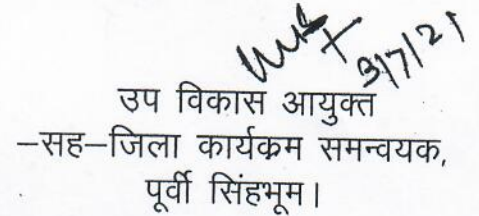 3/7/21
उप विकास आयुक्त
–सह–जिला कार्यक्रम समन्वयक,
पूर्वी सिंहभूम।